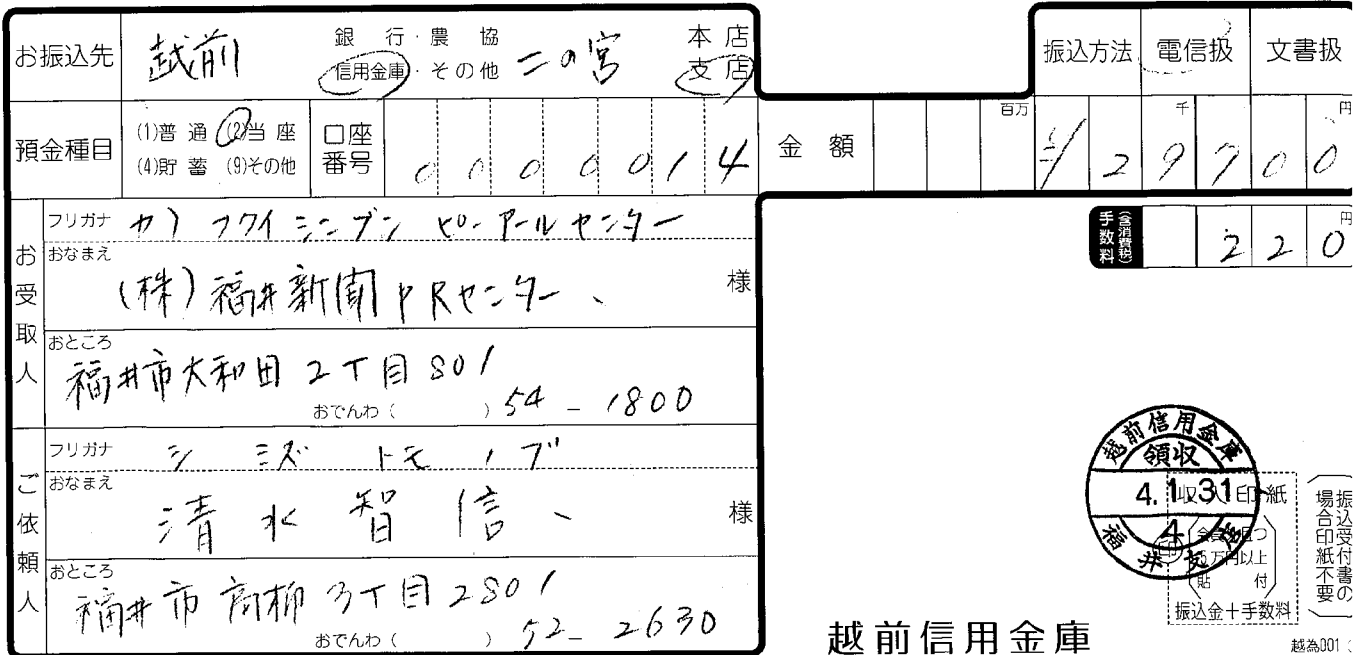 お振込先 越前 銀行・農協 信用金庫・その他 二の宮 本店 支店
振込方法 電信扱 文書扱
預金種目 (1)普通 (2)当座 (4)貯蓄 (9)その他 口座番号 0000014
金額 百万 千 円 ¥129700
手数料 (含消費税) 円 220
お受取人
フリガナ カ)フクイシンブンピーアールセンター
おなまえ (株)福井新聞PRセンター、 様
おところ 福井市大和田2丁目801
おでんわ( ) 54-1800
ご依頼人
フリガナ シミズ トモノブ
おなまえ 清水智信、 様
おところ 福井市高柳3丁目2801
おでんわ( ) 52-2630
越前信用金庫
領収
4.1.31
4
福井支店
収入印紙
5万円以上
貼付
振込金+手数料
振込受付書の場合印紙不要
越前信用金庫
越為001